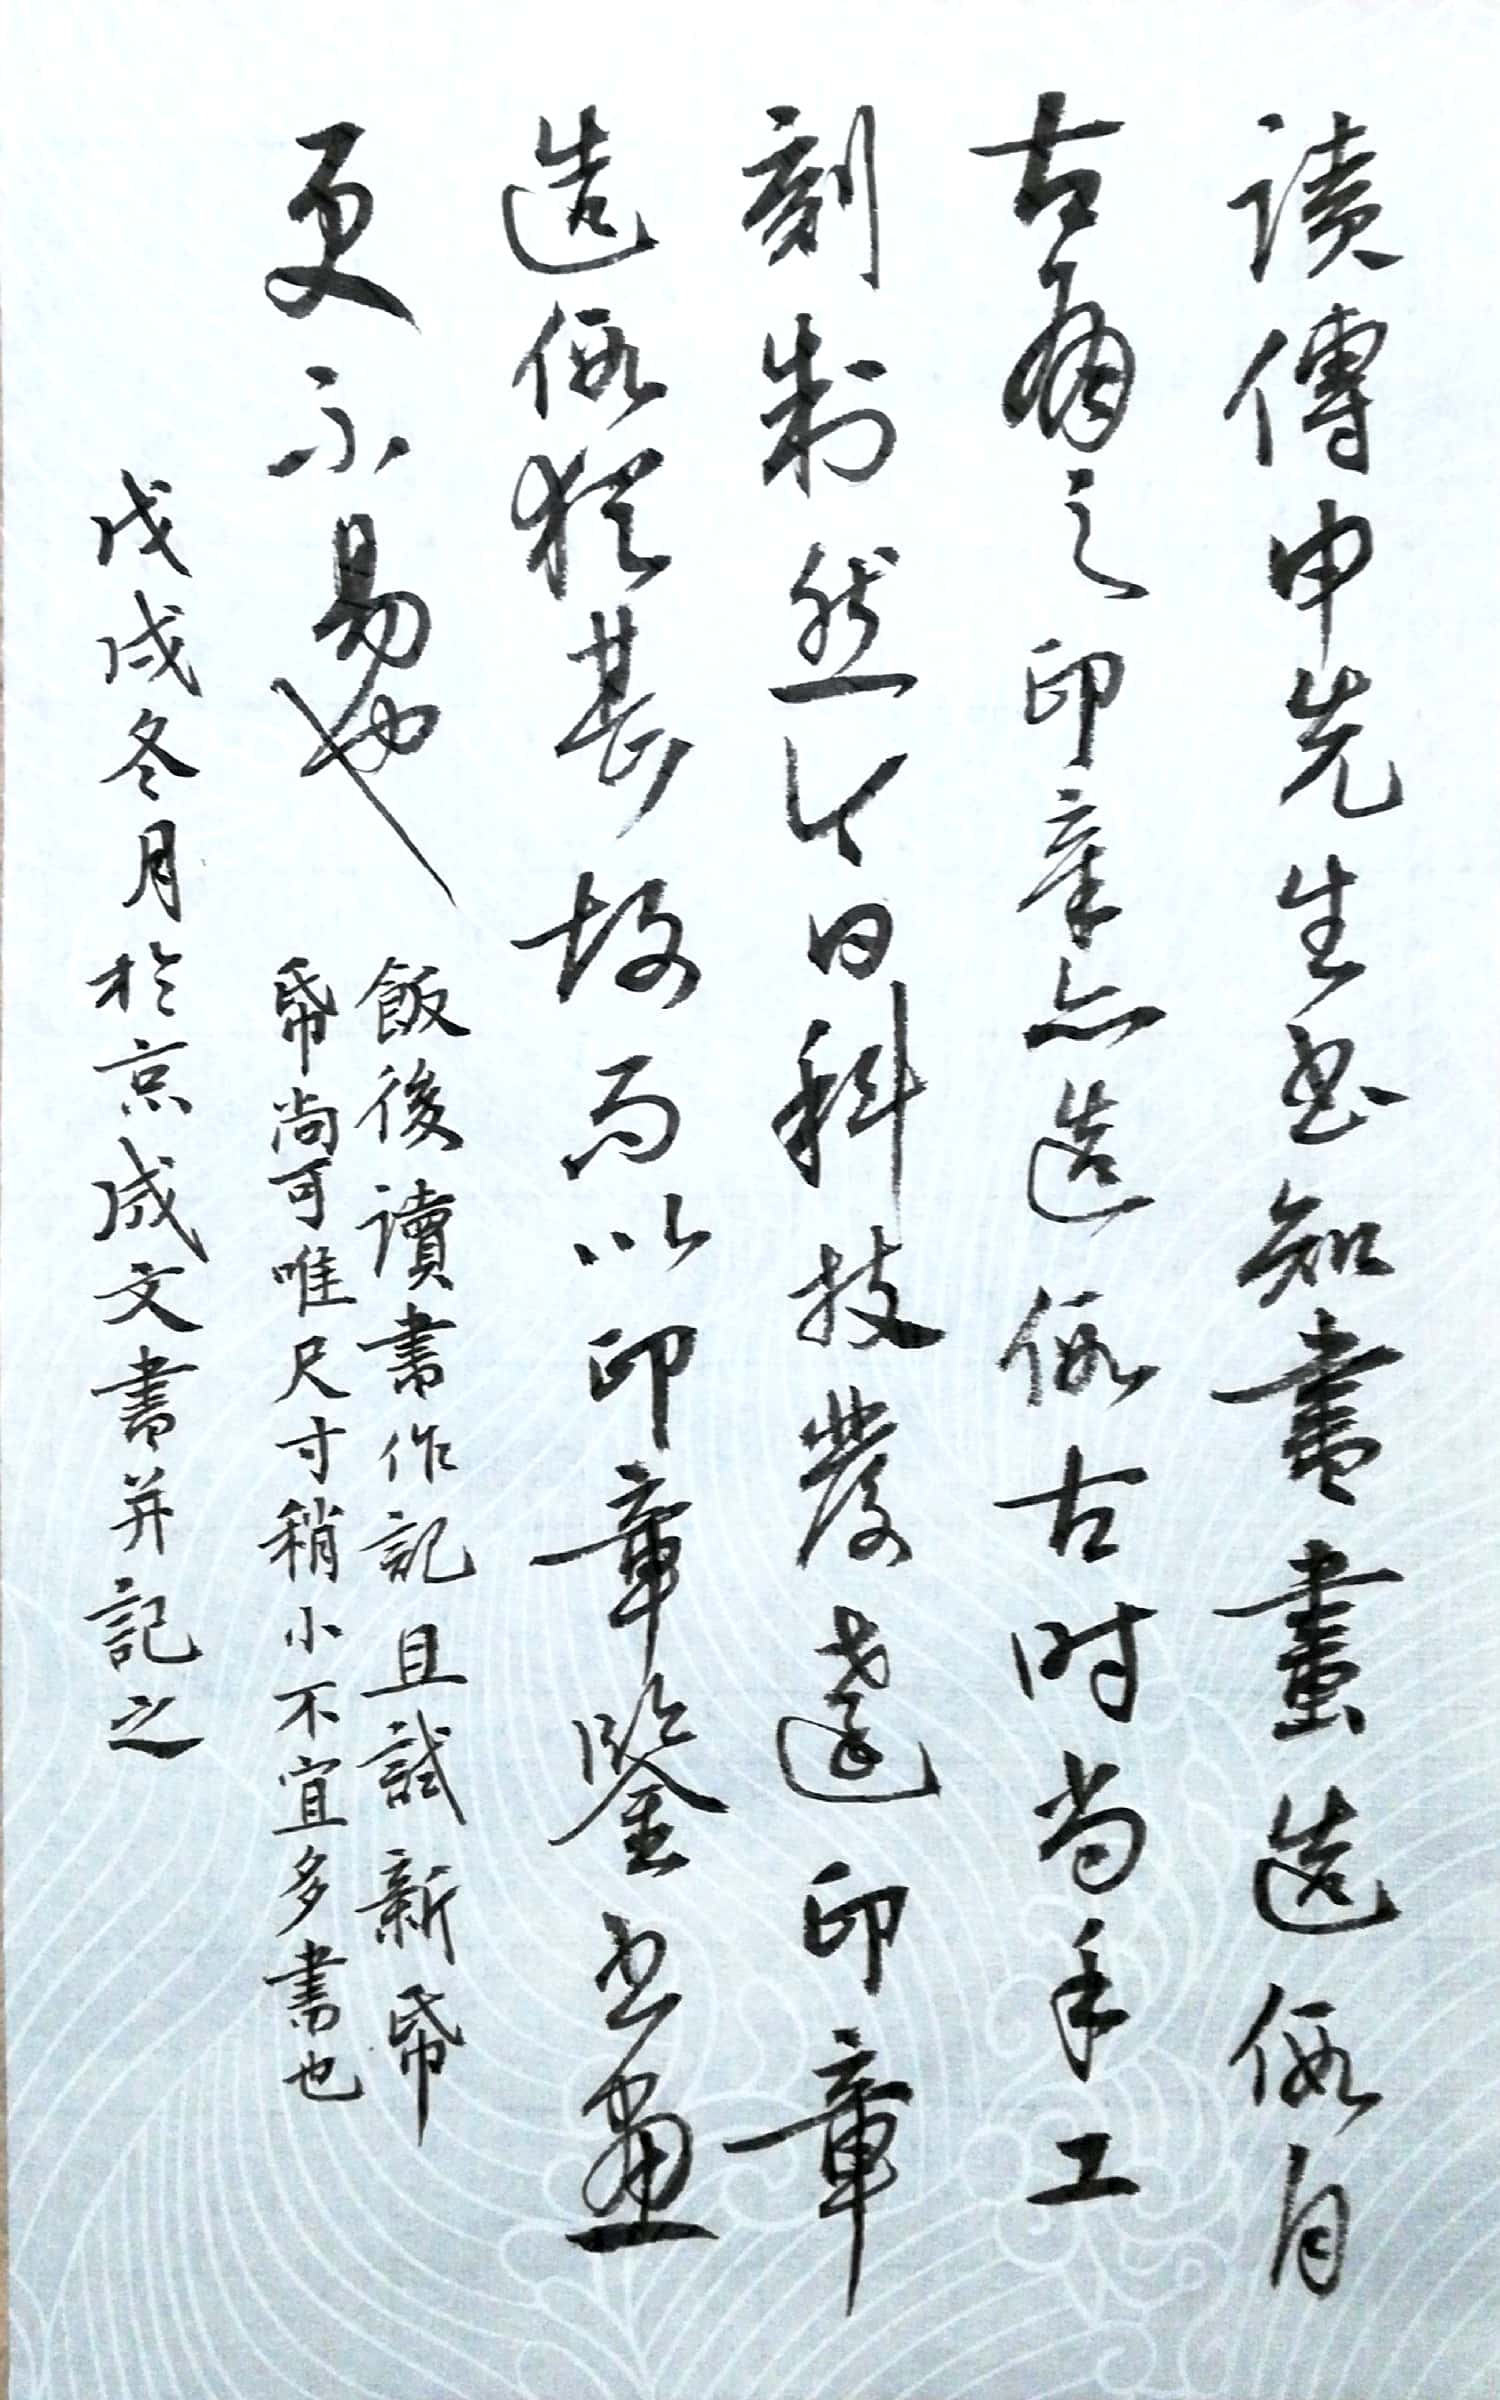 讀傳申先生書知書畫造假自
古有之印章亦造假古时尚手工
刻制然今日科技發達印章
造假猶甚故而以印章鑒书畫
更不易也
飯後讀書作記且試新帋
帋尚可唯尺寸稍小不宜多書也
戊戌冬月於京成文書并記之